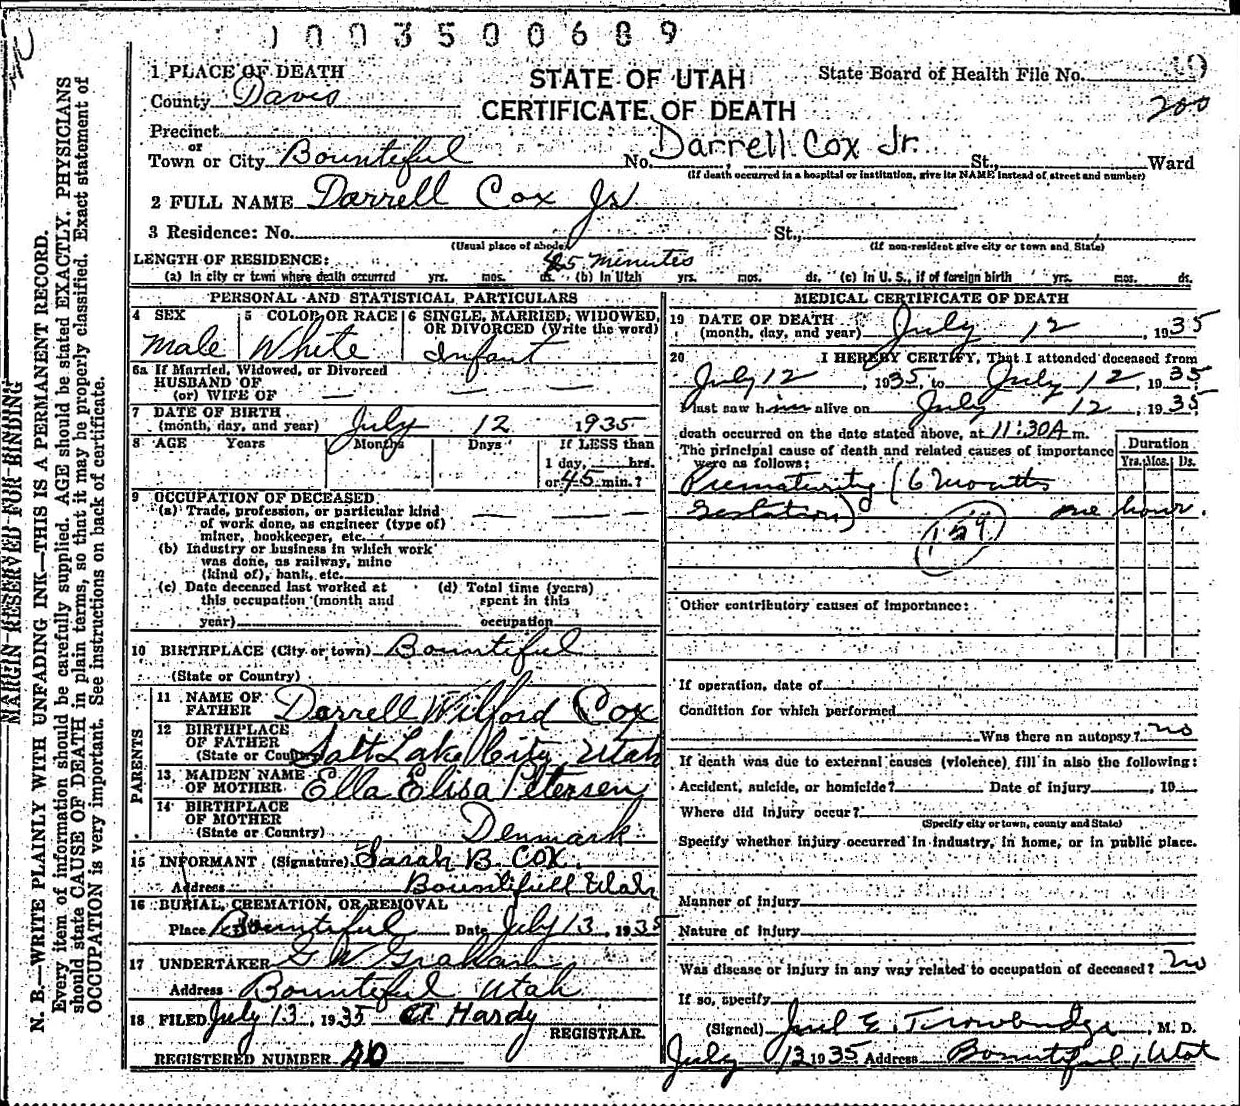 1003500689
1 PLACE OF DEATH
STATE OF UTAH
State Board of Health File No. 10
County Davis
CERTIFICATE OF DEATH
200
Precinct
or
Town or City Bountiful No. Darrell Cox Jr. St., Ward
(If death occurred in a hospital or institution, give its NAME instead of street and number)
2 FULL NAME Darrell Cox Jr
3 Residence: No. St.,
(Usual place of abode) (If non-resident give city or town and State)
LENGTH OF RESIDENCE: 45 minutes
(a) In city or town where death occurred yrs. mos. ds. (b) In Utah yrs. mos. ds. (c) In U. S., if of foreign birth yrs. mos. ds.
PERSONAL AND STATISTICAL PARTICULARS
4 SEX 5 COLOR OR RACE 6 SINGLE, MARRIED, WIDOWED,
OR DIVORCED (Write the word)
Male White Infant
6a If Married, Widowed, or Divorced
HUSBAND OF — —
(or) WIFE OF — —
7 DATE OF BIRTH
(month, day, and year) July 12 1935
8 AGE Years Months Days If LESS than
1 day, hrs.
or 45 min.?
9 OCCUPATION OF DECEASED
(a) Trade, profession, or particular kind
of work done, as engineer (type of)
miner, bookkeeper, etc. — — —
(b) Industry or business in which work
was done, as railway, mine
(kind of), bank, etc.
(c) Date deceased last worked at
this occupation (month and
year)
(d) Total time (years)
spent in this
occupation
10 BIRTHPLACE (City or town) Bountiful
(State or Country)
PARENTS
11 NAME OF
FATHER Darrell Wilford Cox
12 BIRTHPLACE
OF FATHER
(State or Country) Salt Lake City Utah
13 MAIDEN NAME
OF MOTHER Ella Elisa Petersen
14 BIRTHPLACE
OF MOTHER
(State or Country) Denmark
15 INFORMANT (Signature) Sarah B. Cox.
Address Bountifull Utah
16 BURIAL, CREMATION, OR REMOVAL
Place Bountiful Date July 13, 1935
17 UNDERTAKER G W Graham
Address Bountiful Utah
18 FILED July 13, 1935 Hardy
REGISTRAR.
REGISTERED NUMBER 40
MEDICAL CERTIFICATE OF DEATH
19 DATE OF DEATH
(month, day, and year) July 12, 1935
20 I HEREBY CERTIFY, That I attended deceased from
July 12, 1935, to July 12, 1935
I last saw him alive on July 12, 1935
death occurred on the date stated above, at 11:30A m.
The principal cause of death and related causes of importance
were as follows:
Duration
Yrs. Mos. Ds.
Prematurity (6 months
Gestation) one hour.
159
Other contributory causes of importance:
If operation, date of
Condition for which performed
Was there an autopsy? no
If death was due to external causes (violence) fill in also the following:
Accident, suicide, or homicide? Date of injury , 19
Where did injury occur?
(Specify city or town, county and State)
Specify whether injury occurred in industry, in home, or in public place.
Manner of injury
Nature of injury
Was disease or injury in any way related to occupation of deceased? no
If so, specify
(Signed) E. Trowbridge, M. D.
July 13 1935 Address Bountiful, Utah
MARGIN RESERVED FOR BINDING
N. B.—WRITE PLAINLY WITH UNFADING INK—THIS IS A PERMANENT RECORD.
Every item of information should be carefully supplied. AGE should be stated EXACTLY. PHYSICIANS
should state CAUSE OF DEATH in plain terms, so that it may be properly classified. Exact statement of
OCCUPATION is very important. See instructions on back of certificate.